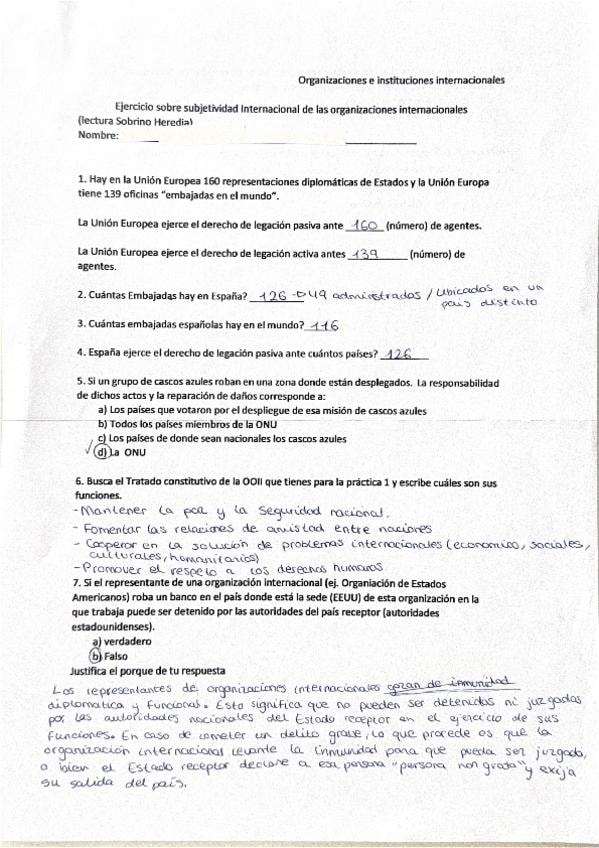 Organizaciones e instituciones internacionales
Ejercicio sobre subjetividad Internacional de las organizaciones internacionales
(lectura Sobrino Heredia)
Nombre:
1. Hay en la Unión Europea 160 representaciones diplomáticas de Estados y la Unión Europa
tiene 139 oficinas “embajadas en el mundo”.
La Unión Europea ejerce el derecho de legación pasiva ante 160 (número) de agentes.
La Unión Europea ejerce el derecho de legación activa antes 139 (número) de
agentes.
2. Cuántas Embajadas hay en España? 126 → 49 administrados / Ubicados en un
país distinto
3. Cuántas embajadas españolas hay en el mundo? 116
4. España ejerce el derecho de legación pasiva ante cuántos países? 126
5. Si un grupo de cascos azules roban en una zona donde están desplegados. La responsabilidad
de dichos actos y la reparación de daños corresponde a:
a) Los países que votaron por el despliegue de esa misión de cascos azules
b) Todos los países miembros de la ONU
c) Los países de donde sean nacionales los cascos azules
✓ d) La ONU
6. Busca el Tratado constitutivo de la OOII que tienes para la práctica 1 y escribe cuáles son sus
funciones.
- Mantener la paz y la seguridad nacional.
- Fomentar las relaciones de amistad entre naciones
- Cooperar en la solución de problemas internacionales (economico, sociales,
culturales, humanitarios)
- Promover el respeto a los derechos humanos
7. Si el representante de una organización internacional (ej. Organiación de Estados
Americanos) roba un banco en el país donde está la sede (EEUU) de esta organización en la
que trabaja puede ser detenido por las autoridades del país receptor (autoridades
estadounidenses).
a) verdadero
b) Falso
Justifica el porque de tu respuesta
Los representantes de organizaciones internacionales gozan de inmunidad
diplomatica y funcional. Esto significa que no pueden ser detenidos ni juzgados
por las autoridades nacionales del Estado receptor en el ejercicio de sus
funciones. En caso de cometer un delito grave, lo que procede es que la
organización internacional levante la inmunidad para que pueda ser juzgado,
o bien el Estado receptor declare a esa persona "persona non grata" y exija
su salida del país.